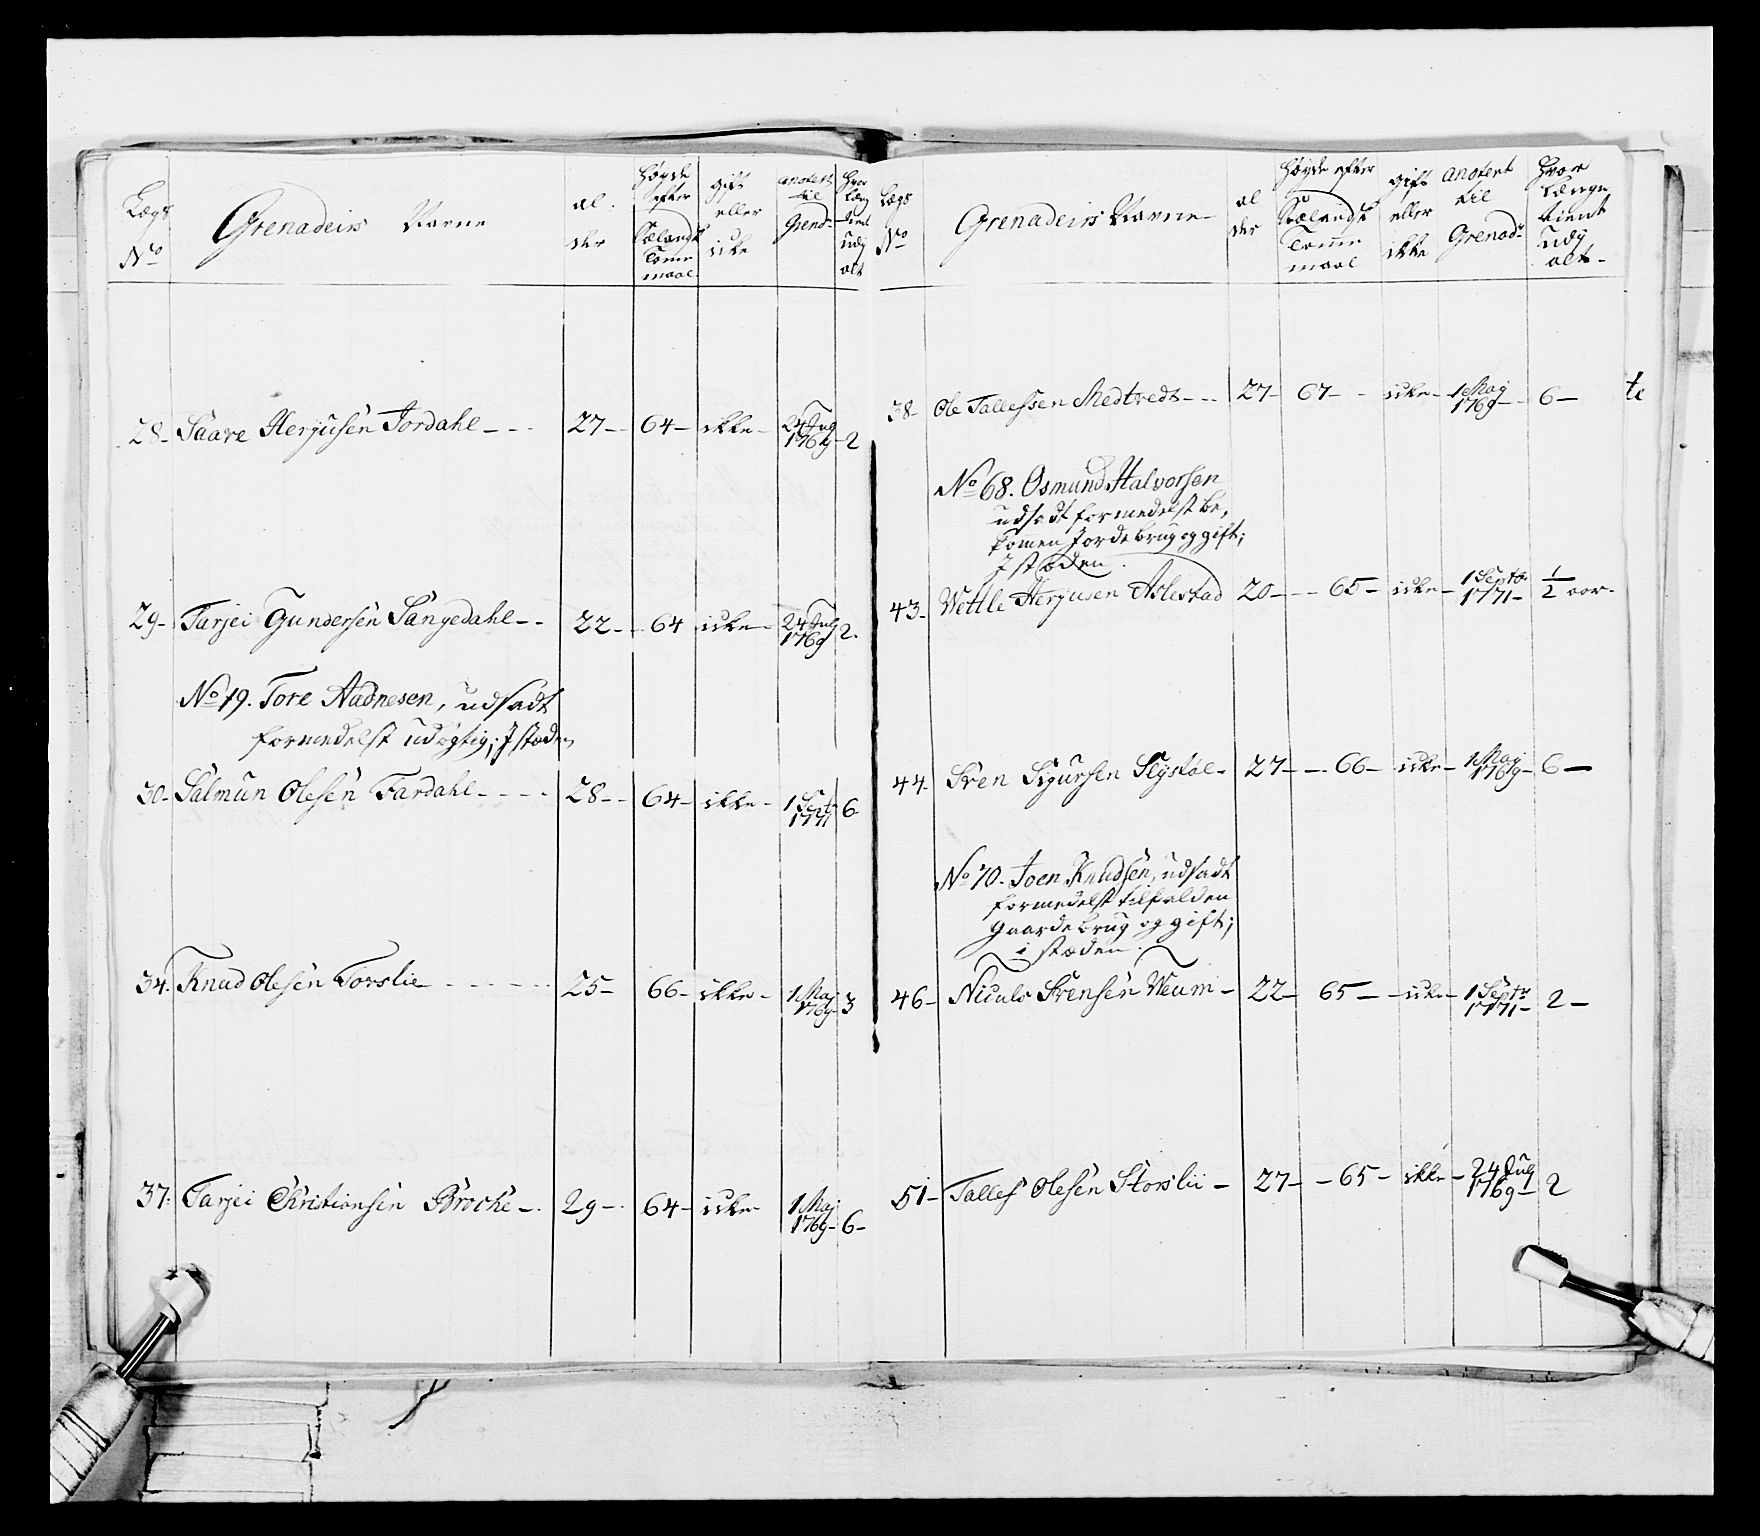 Lægs No
Grenadeirs Navne
al
der
Høyde
efter
Sælandsk
Tomme
maal
gift
eller
icke
anotert
til
Grend:
hvor
læng
tient
udg
alt
28- Saave Herjusen Jordahl - - - 27- 64- ikke- 24 Jug 1769- 2
29- Tarjei Gundersen Sangedahl - - 22- 64 icke- 24 Jug 1769 2.
No 19. Tore Aadnesen, udsadt
formedelst udøgtig; I stæden
30- Salmun Olesen Fardahl - - - - 28- 64- ikke- 1 Sept 1771 6
34. Knud Olesen Torslie - - - - - 25- 66- ikke- 1 Maj 1769- 3
37: Tarjei Christiansen Broche - . 29- 64- icke- 1 Maj 1769- 6-
Lægs
No
Grenadeirs Navne
al
der
Høyde efter
Sælandsk
Tomme
maal
gift
eller
ikke
anotert
til
Grenad:
hvor
længe
tient
udg
alt-
38- Ole Tallefssen Medtveds - - . 27- 67- - icke- 1 Maj 1769- 6- te
No 68. Osmund Halvorsen
udsadt formedelst be,
komen Jordebrug og gift;
I stæden.
43- Wettle Herjusen Aslestad 20- - 65- icke- 1 Septr 1771- 1/2 aar-
44- Sven Sigursen 27- - 66- icke- 1 Maj 1769- 6-
No 70. Joen Knudsen, udsadt
formedelst tilfalden
gaardebrug og gift;
i stæden.
46- Niculs Svensen Veum - 22- 65- - icke- 1 Septr 1771- 2-
51- Tallef Olesen Storslii - 27- - 65- ikke- 24 Jug 1769- 2